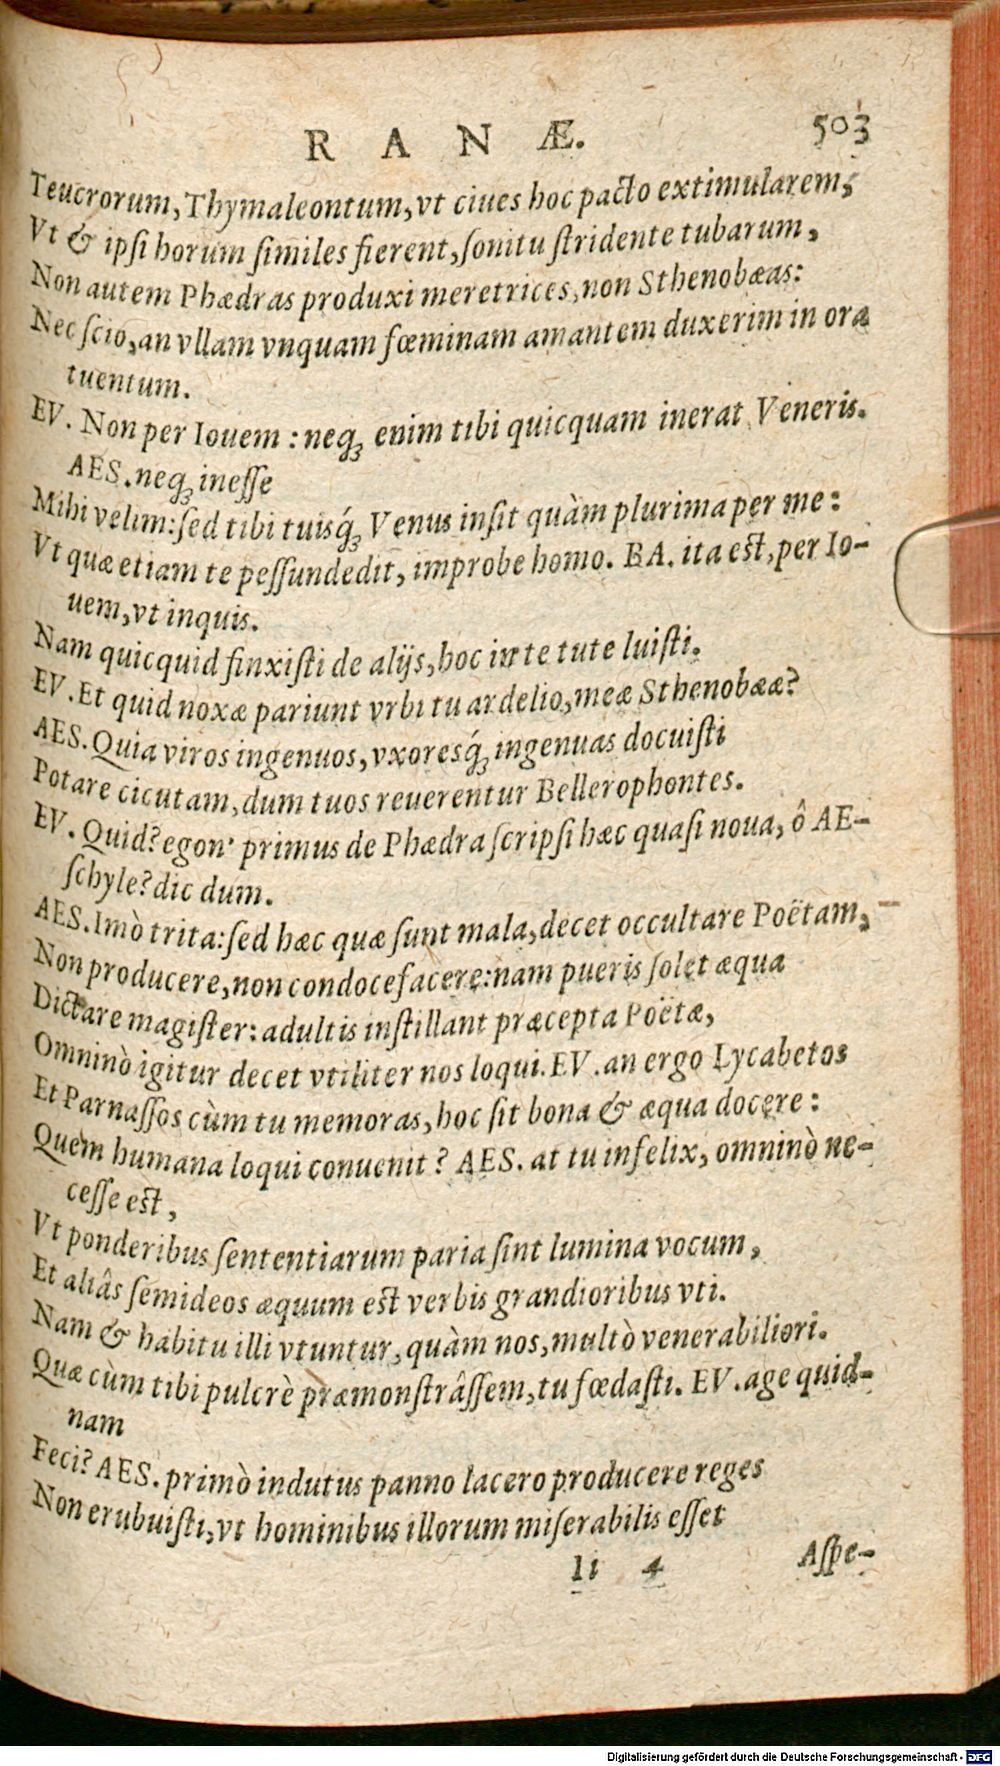 RANÆ. 503
Teucrorum, Thymaleontum, vt ciues hoc pacto extimularem,
Vt & ipsi horum similes fierent, sonitu stridente tubarum,
Non autem Phædras produxi meretrices, non Sthenobæas:
Nec scio, an vllam vnquam fœminam amantem duxerim in ora
tuentum.
EV. Non per Iouem: neq; enim tibi quicquam inerat Veneris.
AES. neq; inesse
Mihi velim: sed tibi tuisq́; Venus insit quàm plurima per me:
Vt quæ etiam te pessundedit, improbe homo. BA. ita est, per Io-
uem, vt inquis.
Nam quicquid finxisti de alijs, hoc in te tute luisti.
EV. Et quid noxæ pariunt vrbi tu ardelio, meæ Sthenobææ?
AES. Quia viros ingenuos, vxoresq́; ingenuas docuisti
Potare cicutam, dum tuos reuerentur Bellerophontes.
EV. Quid? egon' primus de Phædra scripsi hæc quasi noua, ô AE-
schyle? dic dum.
AES. Imò trita: sed hæc quæ sunt mala, decet occultare Poëtam,
Non producere, non condocefacere: nam pueris solet æqua
Dictare magister: adultis instillant præcepta Poëtæ,
Omninò igitur decet vtiliter nos loqui. EV. an ergo Lycabetos
Et Parnassos cùm tu memoras, hoc sit bona & æqua docere:
Quem humana loqui conuenit? AES. at tu infelix, omninò ne-
cesse est,
Vt ponderibus sententiarum paria sint lumina vocum,
Et aliâs semideos æquum est verbis grandioribus vti.
Nam & habitu illi vtuntur, quàm nos, multò venerabiliori.
Quæ cùm tibi pulcrè præmonstrâssem, tu fœdasti. EV. age quid-
nam
Feci? AES. primò indutus panno lacero producere reges
Non erubuisti, vt hominibus illorum miserabilis esset
Ii 4 Aspe-
Digitalisierung gefördert durch die Deutsche Forschungsgemeinschaft - DFG